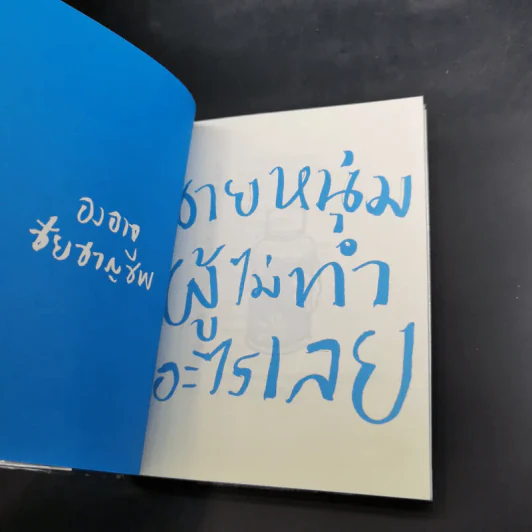 องอาจ
ชัยชาญชีพ
ชายหนุ่ม
ผู้ไม่ทำ
อะไรเลย